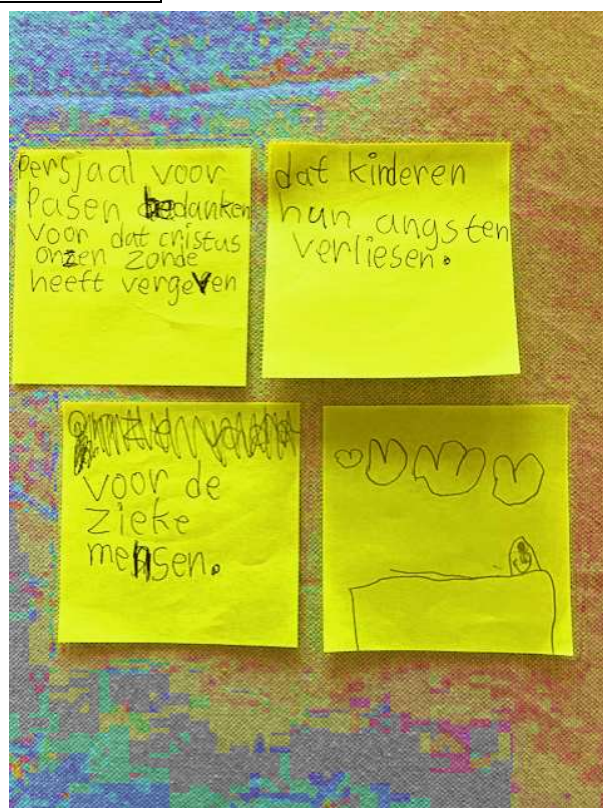 persjaal voor
Pasen bedanken
voor dat cristus
onzen zonde
heeft vergeven
dat kinderen
hun angsten
verliesen.
voor de
zieke
mensen.